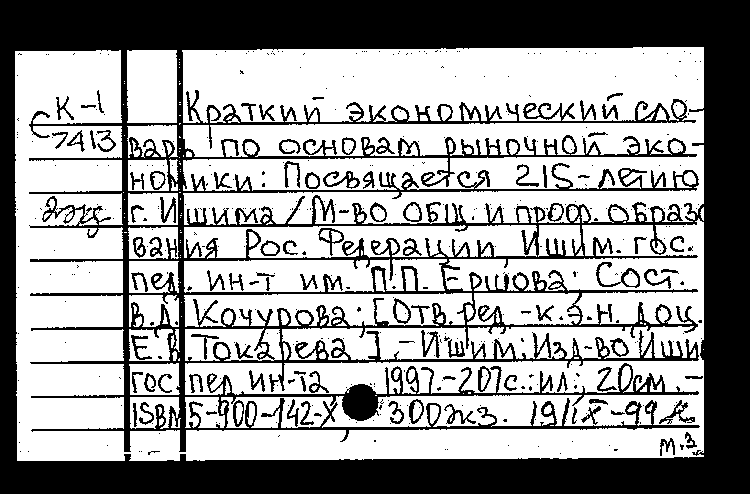 К-1
С 7413
2 экз
Краткий экономический сло-
варь по основам рыночной эко-
номики: Посвящается 215-летию
г. Ишима / М-во общ. и проф. образо
вания Рос. Федерации, Ишим. гос.
пед. ин-т им. П.П. Ершова; Сост.
В.Д. Кочурова; [Отв. ред. - к.э.н. доц.
Е.В. Токарева]. - Ишим: Изд-во Иши
гос. пед. ин-та 1997. - 207с.: ил.; 20см. -
ISBN 5-900-142-X, 300экз. 19/IX-99
М.З